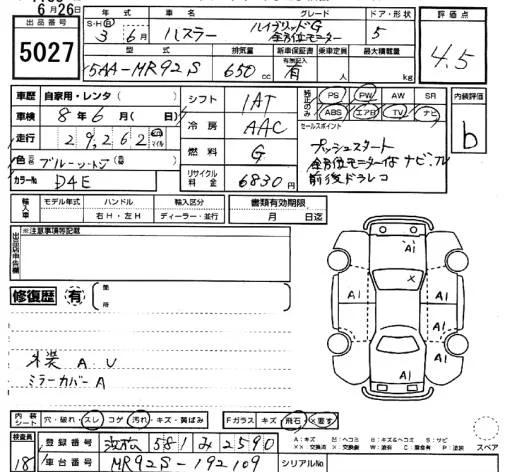 6月26日
出品番号 年式 車名 グレード ドア・形状 評価点
5027 S・H(R) 3 6月 ハスラー ハイブリッドG 全方位モニター 5 4.5
型式 排気量 新車保証書 乗車定員 最大積載量
5AA-MR92S 650cc 有無記入 有 人 kg
車歴 自家用・レンタ( ) シフト 1AT 純正のみ PS PW AW SR 内装評価
車検 8年6月( 日) ABS エアB TV ナビ
走行 29,262 マイル 冷房 AAC セールスポイント b
色 ブルーツートン 燃料 G プッシュスタート
カラーNo D4E リサイクル料金 6830円 全方位モニター付ナビ,TV
前後ドラレコ
輸入車 モデル年式 ハンドル 右H・左H 輸入区分 ディーラー・並行 書類有効期限 月 日迄
出品店申告欄 ※注意事項等記載
A1
修復歴 有 箇所 X
A1 A1 A1 A1
外装 A.U A1
ミラーカバーA
内装シート 穴・破れ・スレ コゲ 汚れ・キズ・黄ばみ Fガラス キズ 飛石・X要す スペア
検査員 登録番号 浜松 581 み 2590 A:キズ U:ヘコミ B:キズ&ヘコミ S:サビ
18 XX:交換済 W:波有 C:腐食有 P:塗装
車台番号 MR92S-192109 シリアルNo